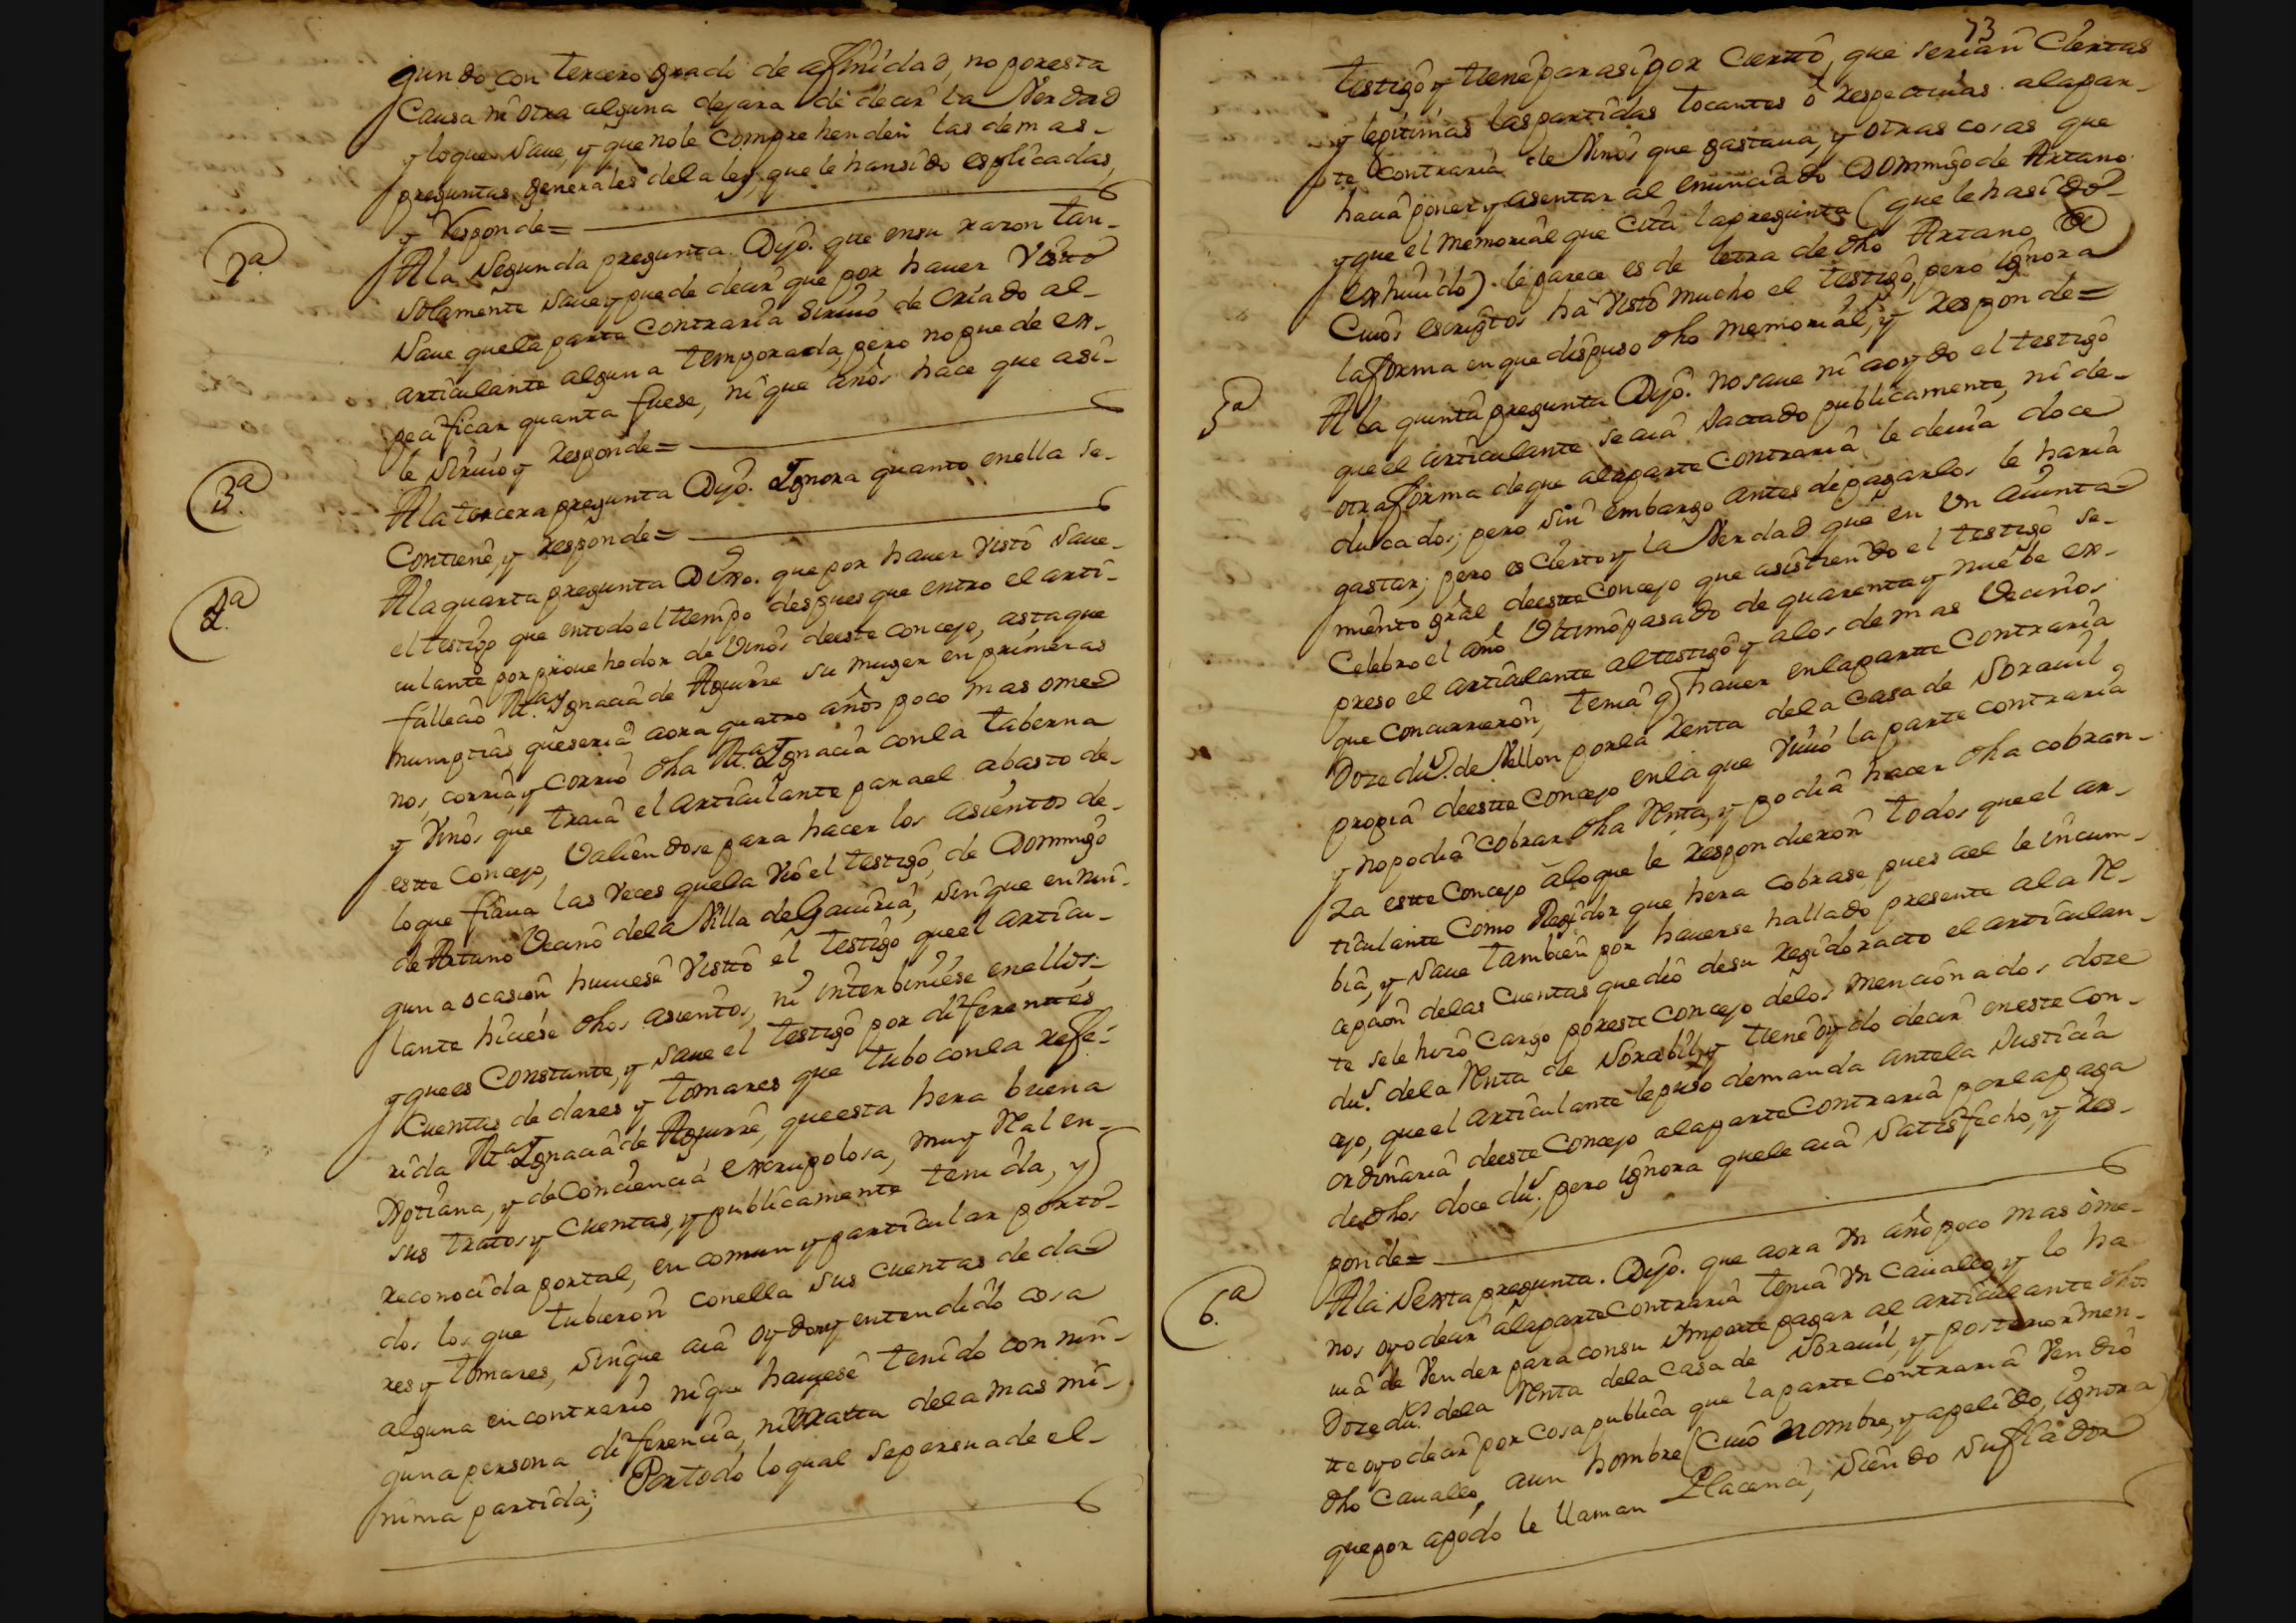 gundo con tercero grado de afinidad, no por esta
Causa ni otra alguna dejara de decir la Verdad
y lo que save, y que no le Comprehenden las demas
preguntas generales de la ley, que le han sido esplicadas,
y Responde=
2ª
A la Segunda pregunta Dijo. que en su razon tan-
solamente save y puede decir que por haver visto
save que la parte Contraria Sirvio de Criado al
articulante alguna temporada, pero no puede ex-
pecificar quanta fuese, ni que años hace que asi-
le sirvio y Responde=
3ª
A la tercera pregunta Dijo. Ygnora quanto en ella se-
Contiene, y Responde=
4ª
A la quarta pregunta Dixo. que por haver visto save
el testigo que en todo el tiempo despues que entro el arti-
culante por provehedor de Vinos de este concejo, asta que
fallecio Mª Ygnacia de Aguirre su muger en primeras
numptias, que seria aora quatro años poco mas ome-
nos, corria, y corrio dha Mª Ygnacia con la taberna
y Vinos que traia el articulante para el abasto de
este Concejo, Valiendose para hacer los asientos de-
lo que fiava las veces que la vio el testigo, de Domingo
de Artano Vecino de la Villa de Gaviria, sin que en nin-
guna ocasion huviese visto el testigo que el articu-
lante hiciese dhos asientos, ni interbiniese en ellos;
y que es Constante, y save el testigo por diferentes
Cuentas de dares y tomares que tubo con la refe-
rida Mª Ygnacia de Aguirre, que esta hera buena
Xptiana, y de Conciencia escrupolosa, muy Real en-
sus tratos y Cuentas, y publicamente tenida, y
reconocida por tal, en comun y particular por to-
dos los que tubieron con ella sus cuentas de da-
res y tomares, sin que aia oydo ny entendido cosa
alguna en contrario ni que huviese tenido con nin-
guna persona diferencia, ni tratta de la mas mi-
nima partida; Por todo lo qual se persuade el
73
testigo y tiene para si por Cierto, que serian Ciertas
y legitimas las partidas tocantes ó respectivas a la par-
te Contraria de Vinos que gastava, y otras cosas que
hacia poner y asentar al enunciado Domingo de Artano
y que el memorial que Cita la pregunta (que le ha sido
exhivido) le parece es de letra de dho Artano de
Cuios escriptos ha visto mucho el testigo, pero ignora
la forma en que dispuso dho memorial, y Responde=
5ª
A la quinta pregunta Dijo. no save ni a oydo el testigo
que el articulante se aia Jactado publicamente, ni de-
otra forma de que a la parte Contraria le devia doce
ducados; pero sin embargo antes de pagarlos le haria
gastar; pero es Cierto y la Verdad que en Un aiunta-
miento gral de este Concejo que asistiendo el testigo se-
Celebro el año Ultimo pasado de quarenta y nuebe ex-
preso el articulante al testigo y a los demas Vecinos
que Concurrieron, tenia q haver en la parte Contraria
Doze dus. de Vellon por la Renta de la Casa de Sorauil
propia de este Concejo en la que vivio la parte contraria
y no podia Cobrar dha Renta, y podia hacer dha cobran-
za este Concejo a lo que le respondieron todos que el ar-
ticulante Como Regidor que hera cobrase, pues a el le incum-
bia, y save tambien por haverse hallado presente a la Re-
cepcion de las Cuentas que dio de su regidorato el articulan-
te se le hizo Cargo por este Concejo de los mencionados doze
dus. de la Renta de Sorabil, y tiene oydo decir en este Con-
cejo, que el articulante le puso demanda ante la Justicia
ordinaria de este Concejo a la parte Contraria por la paga
de dhos doce dus, pero ignora que le aia Satisfecho, y Res-
ponde=
6ª
A la Sexta pregunta. Dijo. que aora Un año poco mas ó me-
nos oyo decir a la parte Contraria tenia Un Cavallo, y lo ha-
via de Vender para con su Importe pagar al articulante dhos
Doze dus. de la Renta de la Casa de Sorauil, y posteriormen-
te oyo decir por Cosa publica que la parte Contraria Vendio
dho Cavallo, a un hombre (Cuio nombre, y apelido, ignora)
que por apodo le llaman Placencia, siendo su fiador